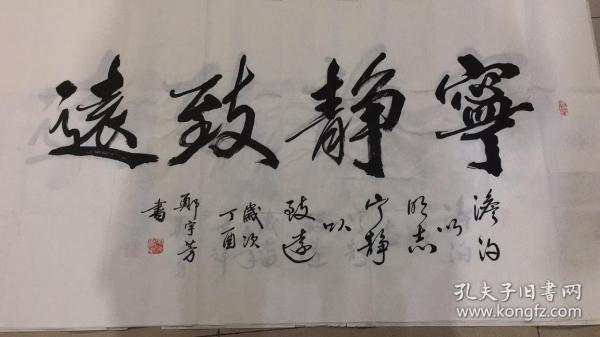 寧靜致遠
澹泊
以
明志
宁静
以
致遠
歲次
丁酉
鄭宇芳
書
孔夫子旧书网
www.kongfz.com